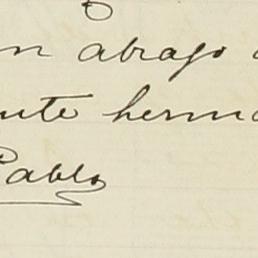 n abrazo
nte herma
Pablo